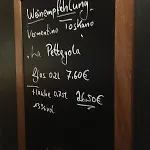 Weinempfehlung
Vermentino Toskana
La Pettegola
Glas 0,2l 7.60€
Flasche 0,75l 26.50€